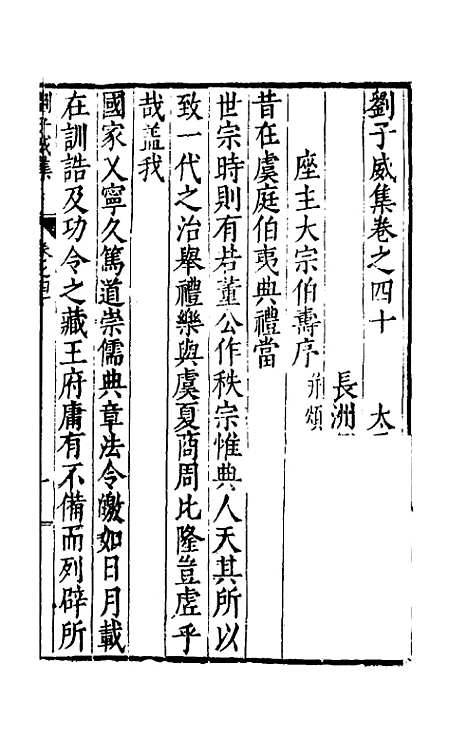 劉子威集卷之四十 太
長洲
座主大宗伯壽序 并頌
昔在虞庭伯夷典禮當
世宗時則有若董公作秩宗惟典人天其所以
致一代之治舉禮樂與虞夏商周比隆豈虛乎
哉蓋我
國家乂寧久篤道崇儒典章法令皦如日月載
在訓誥及功令之藏王府庸有不備而列辟所
劉子威集 卷之四十 一